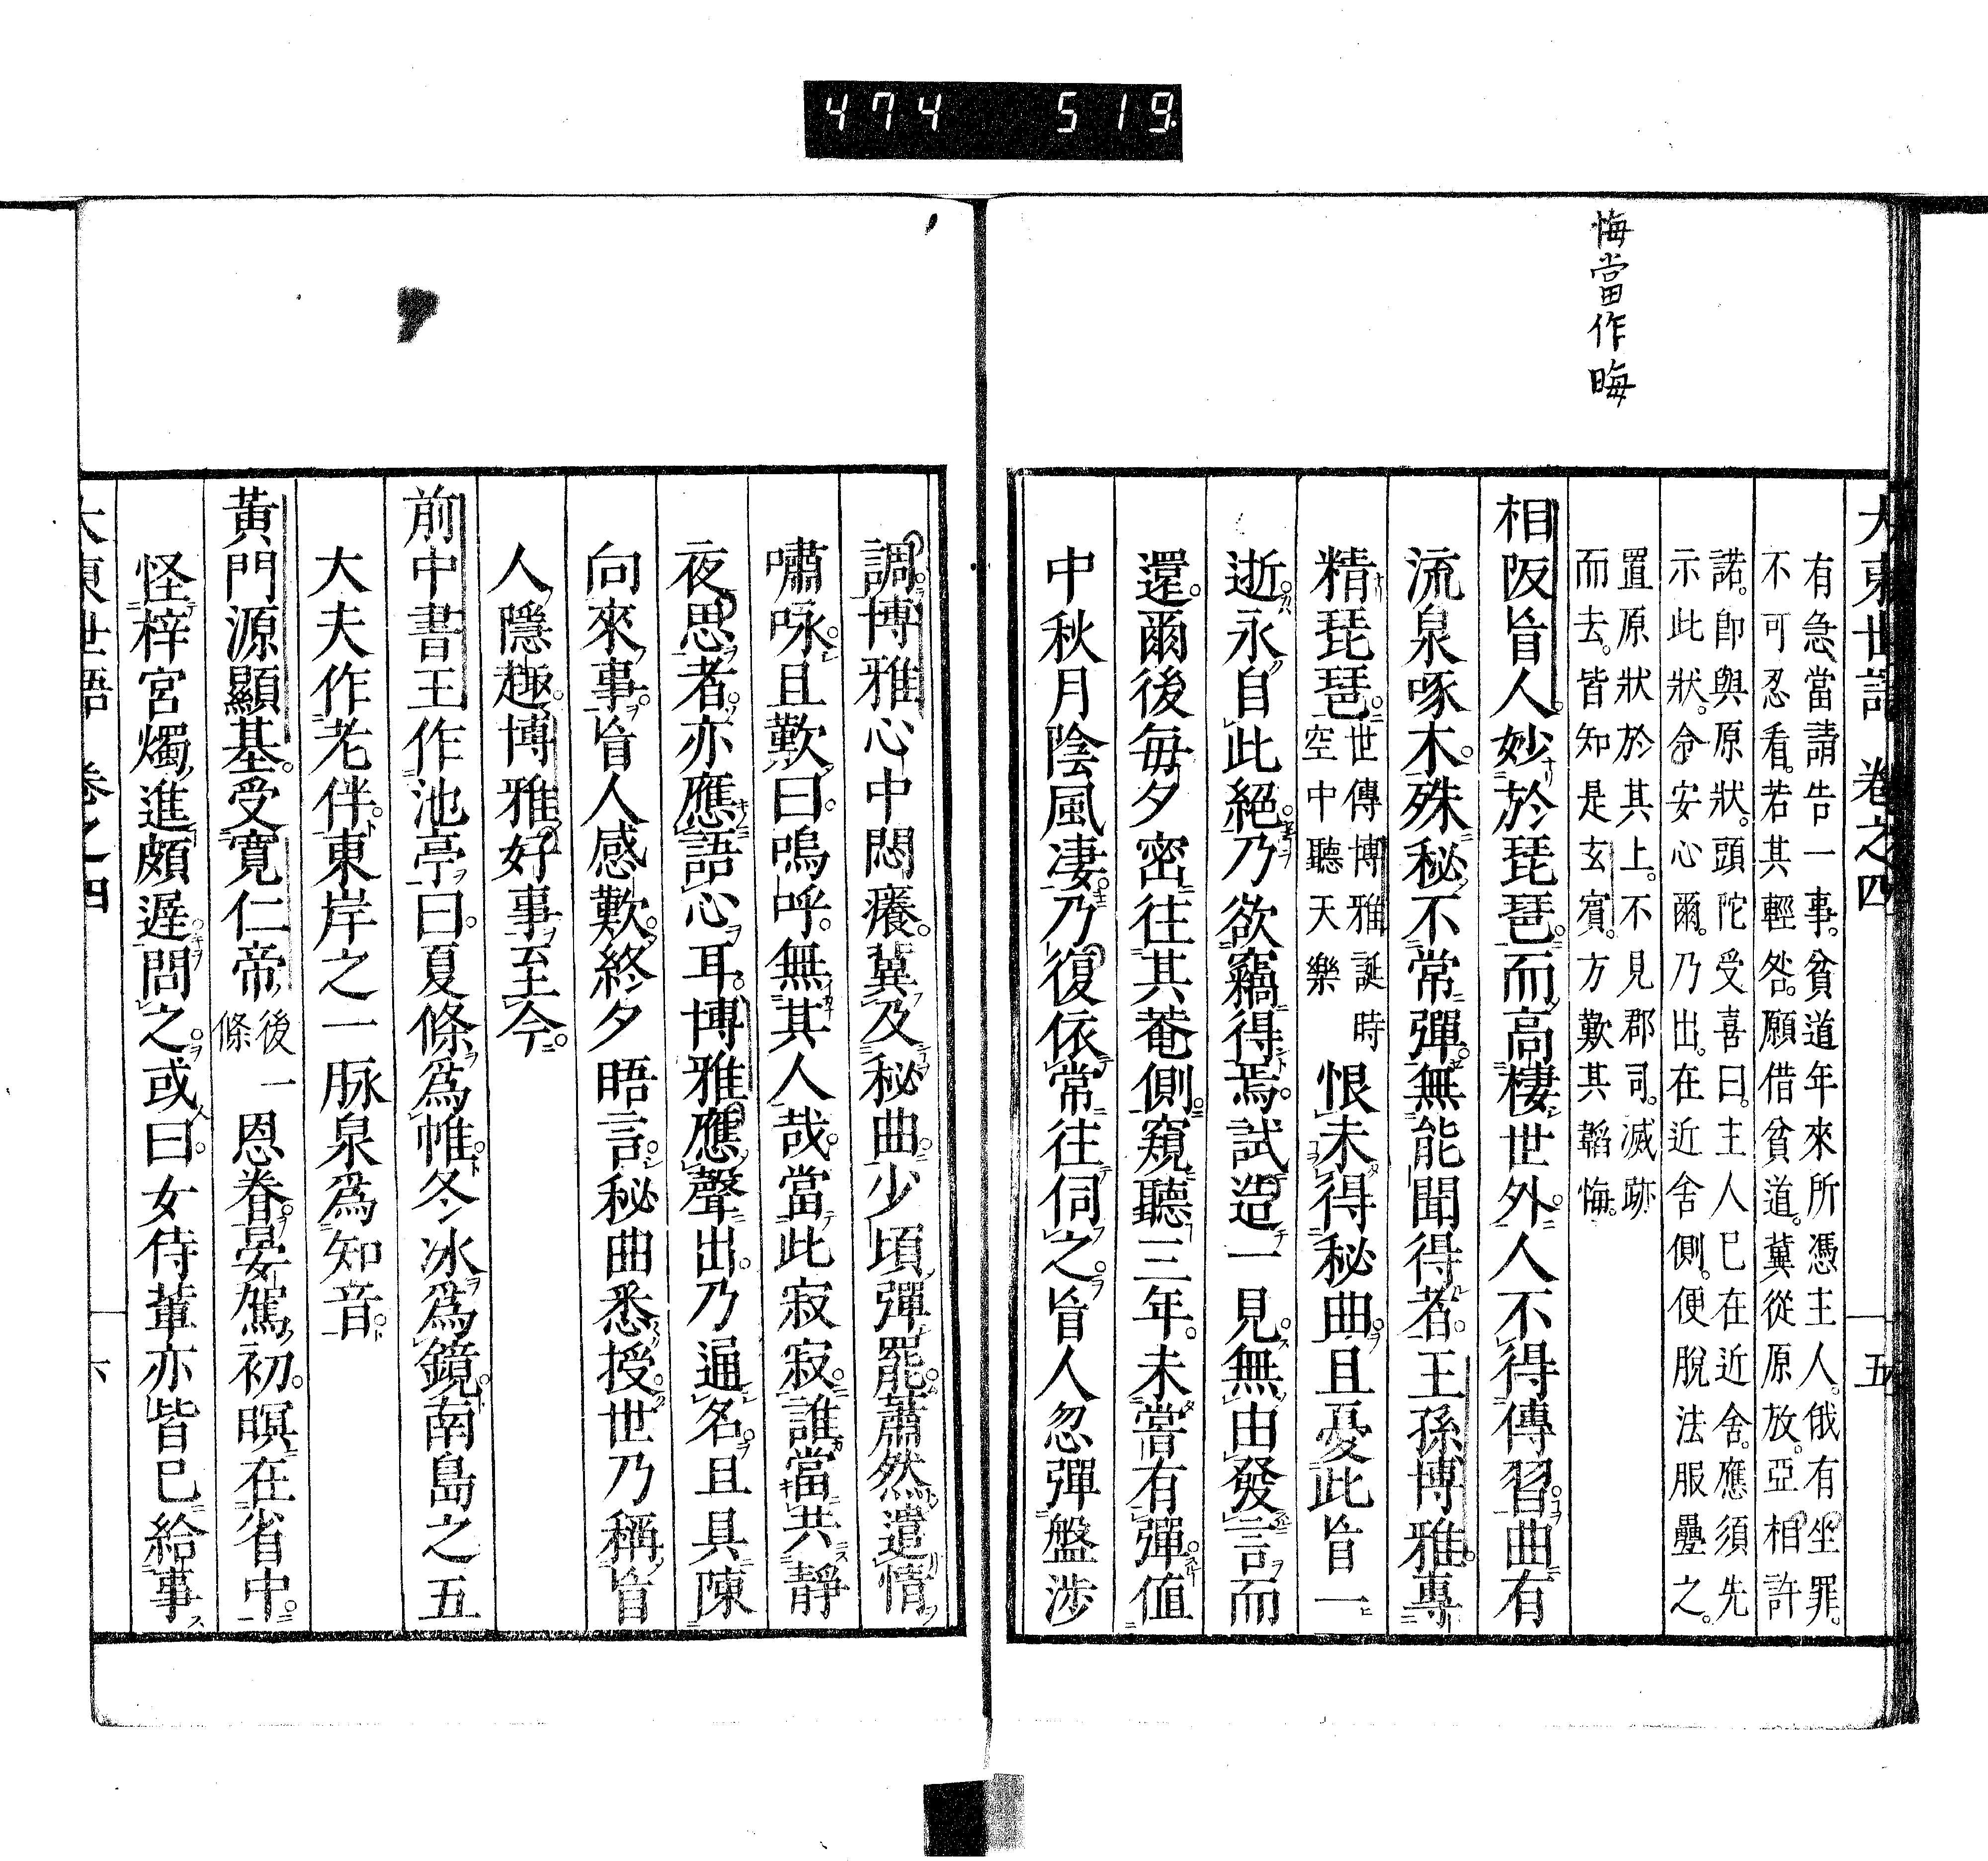 474 519
悔當作晦
大東世語 卷之四 五
有急當請告一事。貧道年來所憑主人。俄有坐罪。
不可忍看。若其輕咎。願借貧道。冀從原放。亞相許
諾。卽與原狀。頭陀受喜曰。主人已在近舍。應須先
示此狀。令安心爾。乃出。在近舍側。便脫法服疊之。
置原狀於其上。不見郡司。滅跡
而去。皆知是玄賓。方歎其韜悔。
相阪旨人。妙於琵琶。而高棲世外。人不得傳習。曲有
流泉啄木。殊秘不常彈。無能聞得者。王孫博雅。專
精琵琶。世傳博雅誕時
空中聽天樂 恨未得秘曲。且憂此旨一
逝。永自此絕。乃欲竊得焉。試造一見。無由發言而
還。爾後每夕密往其菴側。窺聽三年。未嘗有彈。値
中秋月陰風凄。乃復依常往伺之。旨人忽彈盤涉
調。博雅心中悶癢。冀及秘曲。少頃彈罷。蕭然遣情
嘯咏。且歎曰。嗚呼。無其人哉。當此寂寂。誰當共靜
夜思者。亦應語心耳。博雅應聲出。乃通名。且具陳
向來事。旨人感歎。終夕晤言。秘曲悉授。世乃稱旨
人隱趣。博雅好事。至今。
前中書王作池亭曰。夏條爲帷。冬冰爲鏡。南島之五
大夫作老伴。東岸之一脉泉爲知音。
黃門源顯基。受寬仁帝後一
條恩眷。晏駕初。暝在省中。
怪梓宮燭進頗遲。問之。或曰。女侍輩亦皆已給事
大東世語 卷之四 六